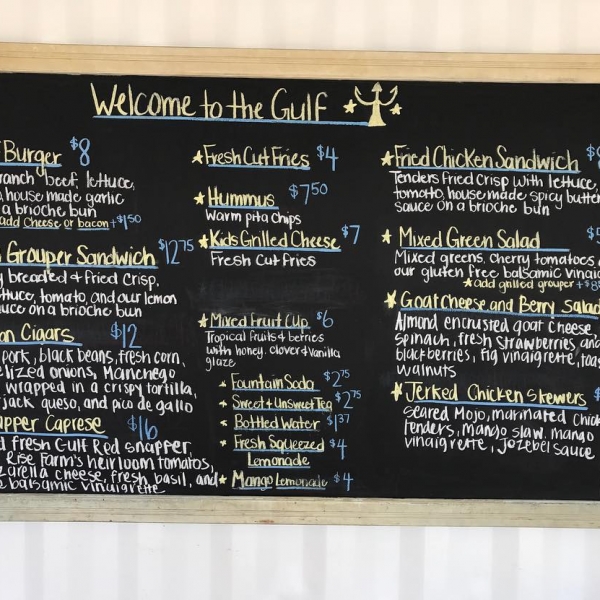 Welcome to the Gulf
Burger $8
ranch beef, lettuce,
house made garlic
a brioche bun
add cheese or bacon +$1.50
Grouper Sandwich $12.75
breaded & fried crisp,
tomato, and our lemon
sauce on a brioche bun
Cigars $12
pork, black beans, fresh corn,
onions, Manchego
wrapped in a crispy tortilla,
jack queso, and pico de gallo
Caprese $16
fresh Gulf Red snapper,
Rise Farm's heirloom tomatoes,
cheese, fresh basil, and
balsamic vinaigrette
Fresh Cut Fries $4
Hummus $7.50
Warm pita chips
Kids Grilled Cheese $7
Fresh Cut Fries
Mixed Fruit Cup $6
Tropical Fruits & berries
with honey, clover & vanilla
glaze
Fountain Soda $2.75
Sweet & Unsweet Tea $2.75
Bottled Water $1.37
Fresh Squeezed
Lemonade $4
Mango Lemonade $4
Fried Chicken Sandwich
Tenders fried crisp with lettuce,
tomato, house made spicy
sauce on a brioche bun
Mixed Green Salad
Mixed greens, cherry tomatoes
our gluten free balsamic
add grilled grouper
Goat Cheese and Berry Salad
Almond encrusted goat cheese,
spinach, fresh strawberries, and
blackberries, fig vinaigrette,
walnuts
Jerked Chicken Skewers
Seared Mojo, marinated Chicken
Tenders, mango slaw, mango
vinaigrette, Jezebel sauce